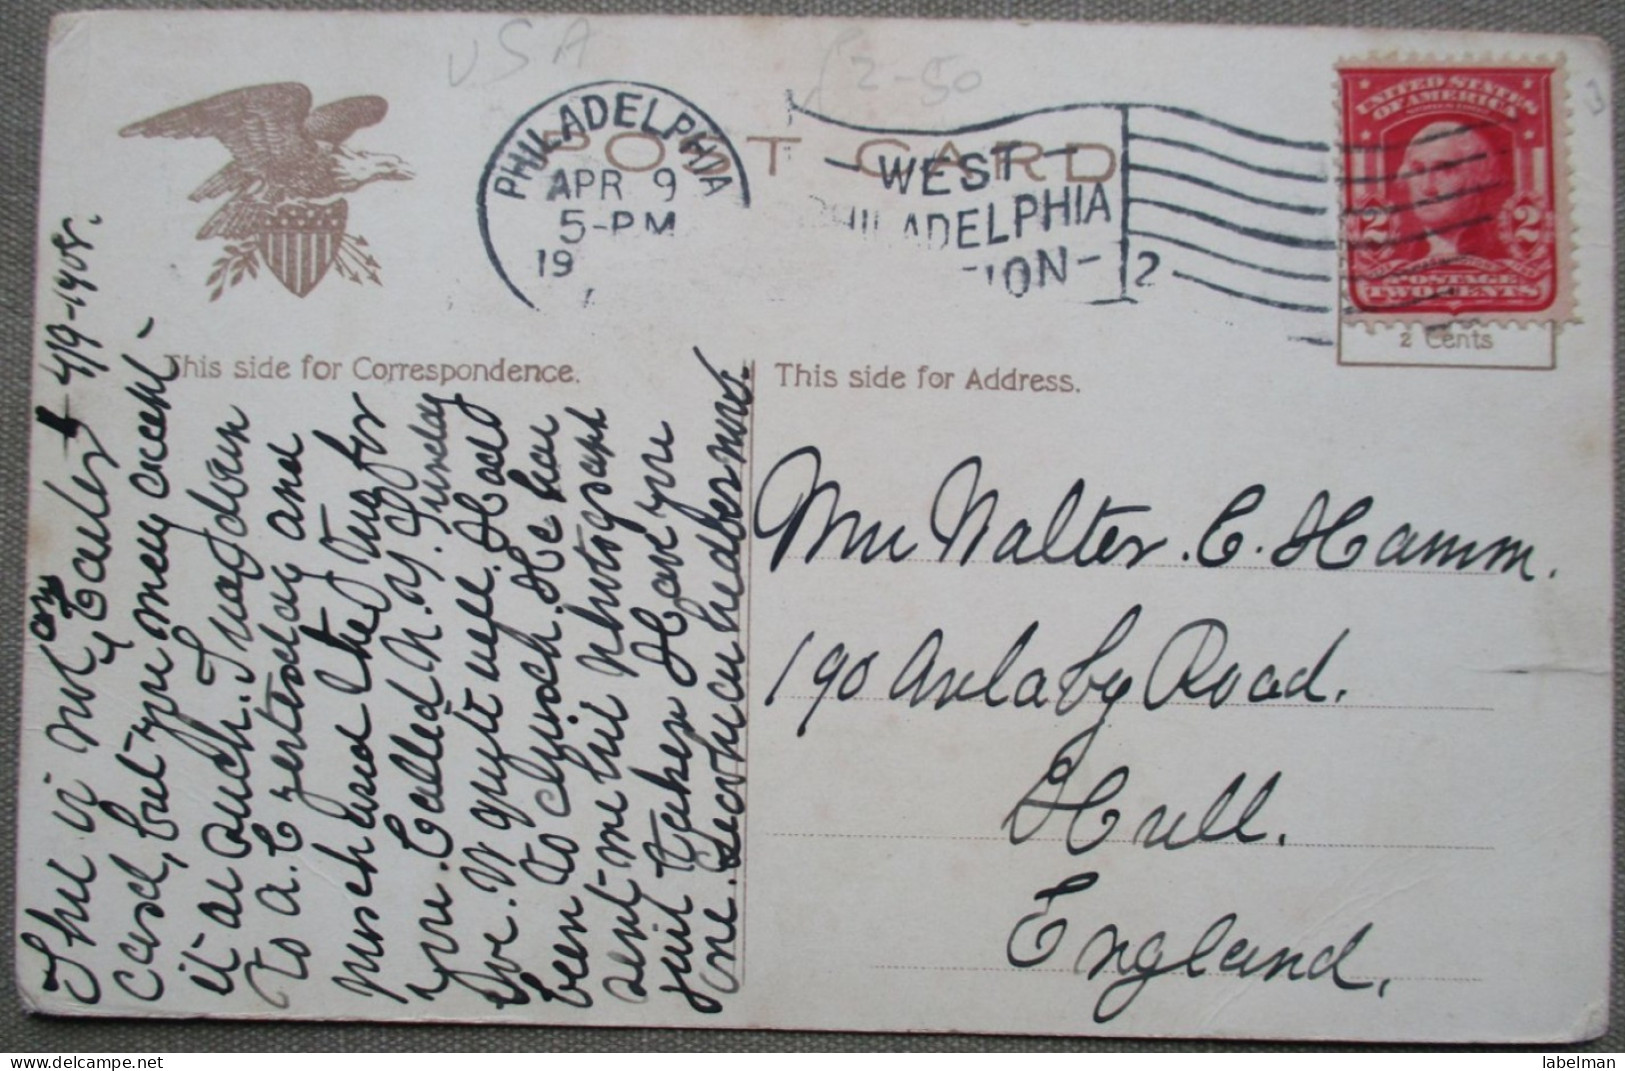 USA
2-50
POST CARD
PHILADELPHIA
APR 9
5-PM
19
WEST
PHILADELPHIA
ION
2
UNITED STATES
OF AMERICA
2 2
POSTAGE
TWO CENTS
2 Cents
This side for Correspondence.
This side for Address.
4/9-1908.
This is not an Easter
card, but you may accept
it as such. I was down
to A.C yesterday and
purchased the for
you. Called N. Sunday
eve. quite well. Had
been to church. He has
sent me his photograph
just taken Have you
one.
Mrs Walter. C. Hamm.
190 Anlaby Road.
Hull.
England,
labelman